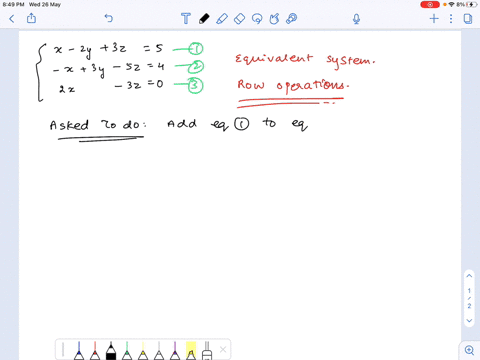 8:49 PM Wed 26 May
8%
x - 2y + 3z = 5 — 1
-x + 3y - 5z = 4 — 2
2x - 3z = 0 — 3
Equivalent system.
Row operations.
Asked To do: Add eq 1 to eq
1
/
2